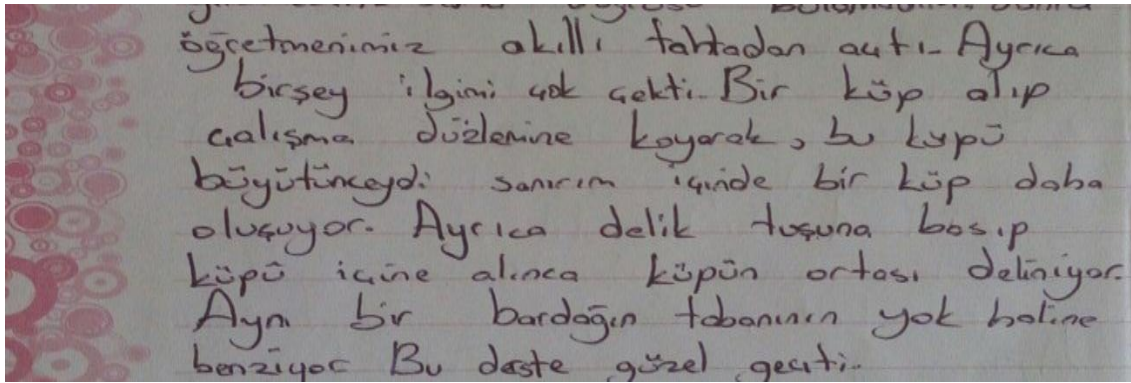 öğretmenimiz akıllı tahtadan açtı. Ayrıca
birşey ilgimi çok çekti. Bir küp alıp
çalışma düzlemine koyarak, bu kypü
büyütünceydi sanırım içinde bir küp daha
oluşuyor. Ayrıca delik tuşuna basıp
küpü içine alınca küpün ortası deliniyor.
Aynı bir bardağın tabanının yok haline
benziyor Bu derste güzel geçti.